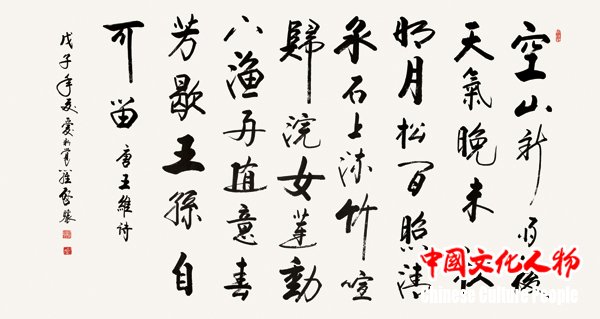 空山新雨後
天氣晚来秋
明月松间照清
泉石上流竹喧
歸浣女蓮動
下漁舟随意春
芳歇王孫自
可留 唐王維诗
戊子年夏愛新覺羅
中国文化人物
Chinese Culture People